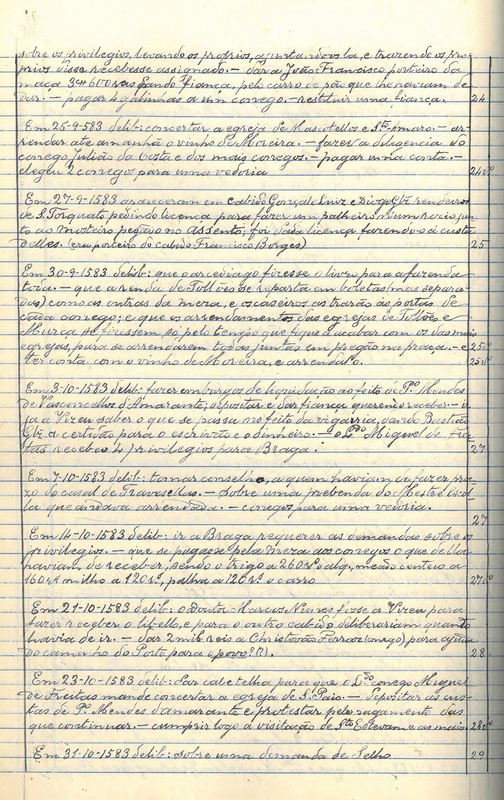 sobre os privilegios, levando os proprios, ajuntando-os la, e trazendo os pro-
prios disso recebesse assignado. — dar a João Francisco porteiro da
maça 3$600 reis dando fiança, pelo carro de pão que lhe haviam de
dar. — pagar 4 galinhas a um conego. — restituir uma fiança. 24
Em 25-9-583 delib: concertar a egreja de Mascotellos e Stº Amaro. — ar-
rendar até amanhã o vinho de Moreira. — fazer a diligencia do
conego Julião da Costa e dos mais conegos. — pagar uma conta. —
elegeu 2 conegos para uma vedoria 24vº
Em 27-9-1583 appareceram em cabido Gonçalo Luiz e Diogo Glz rendeiros
de S. Torquato, pedindo licença para fazer um palheiro num rocio jun-
to ao mosteiro pegão no Assento; foi dada licença fazendo-o á custa
d'elles. (era porteiro do cabido Francisco Borges) 25
Em 30-9-1583 delib: que o arcediago fizesse o livro para a fazenda
toda. — que a renda de Tollões se reparta em boletas (mas separa-
das) como as outras da meza, e os caseiros as trarão ás portas de
cada conego; e que os arrendamentos das egrejas de Tollões e
Murça se fizessem só pelo tempo que fique a acabar com os das mais
egrejas, para se arrendarem todas juntas em pregão na praça. — e 25vº
ter conta com o vinho de Moreira, e arrendal-o. 25vº
Em 3-10-1583 delib: fazer embargos de liquidação ao feito de Pº Mendes
de Vasconcellos d'Amarante; depositar e dar fiança querendo receber. — ir
já a Vizeu saber o que se passa no feito da vigarria, dando Bastião
Glz a certidão para o escrivão e o dinheiro. — o Ldo Miguel de Frei-
tas receber 4 privilegios para Braga. 27
Em 7-10-1583 delib: tomar conselho, a quem haviam de fazer pra-
zo do casal de Travasellas. — sobre uma prebenda do Mestre esco-
la que andava arrendada. — conegos para uma vedoria. 27
Em 14-10-1583 delib: ir a Braga requerer as demandas sobre os
privilegios. — que se pagasse pela meza aos conegos o que d'ella
haviam de receber, sendo o trigo a 260 rs o alq, meão centeio a
160 rs milho a 120 rs, palha a 120 rs o carro 27vº
Em 21-10-1583 delib: o Doutor Marcus Nunes fosse a Vizeu para
fazer receber o libello, e para o outro cabido deliberariam quanto
havia de ir. — dar 2 mil reis a Christovão Ferraz (conego) para ajuda
do caminho do Porto para o povo (?). 28
Em 23-10-1583 delib: dar cal e telha para que o Ldo conego Miguel
de Freitas mande concertar a egreja de S. Paio. — Depositar as cus-
tas de Pº Mendes d'Amarante e protestar pelo pagamento das
que continuar. — cumprir logo a visitação de Stº Estevam e as mais 28vº
Em 31-10-1583 delib: sobre uma demanda de Selho 29